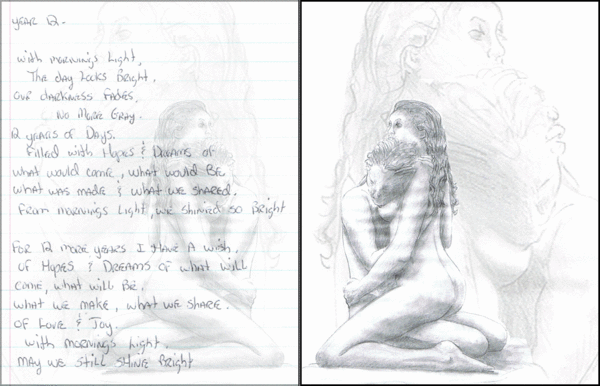 YEAR 12.
With Morning's Light,
The day looks Bright.
Our darkness fades,
No More Gray.
12 years of Days.
Filled with Hopes & Dreams of
what would come, what would Be,
what was made & what we shared.
From morning's Light, we shined so Bright
For 12 more years I have a wish.
Of Hopes & Dreams of what will
come, what will Be.
What we make, what we share.
Of Love & Joy.
With morning's Light.
May we still shine Bright